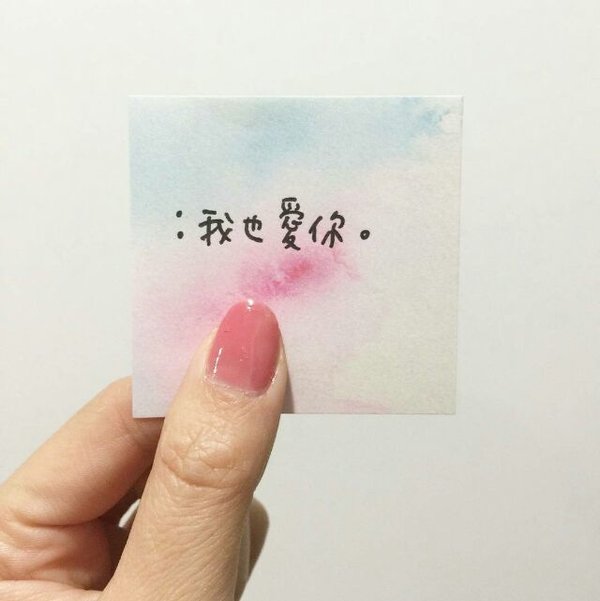 ：我也愛你。